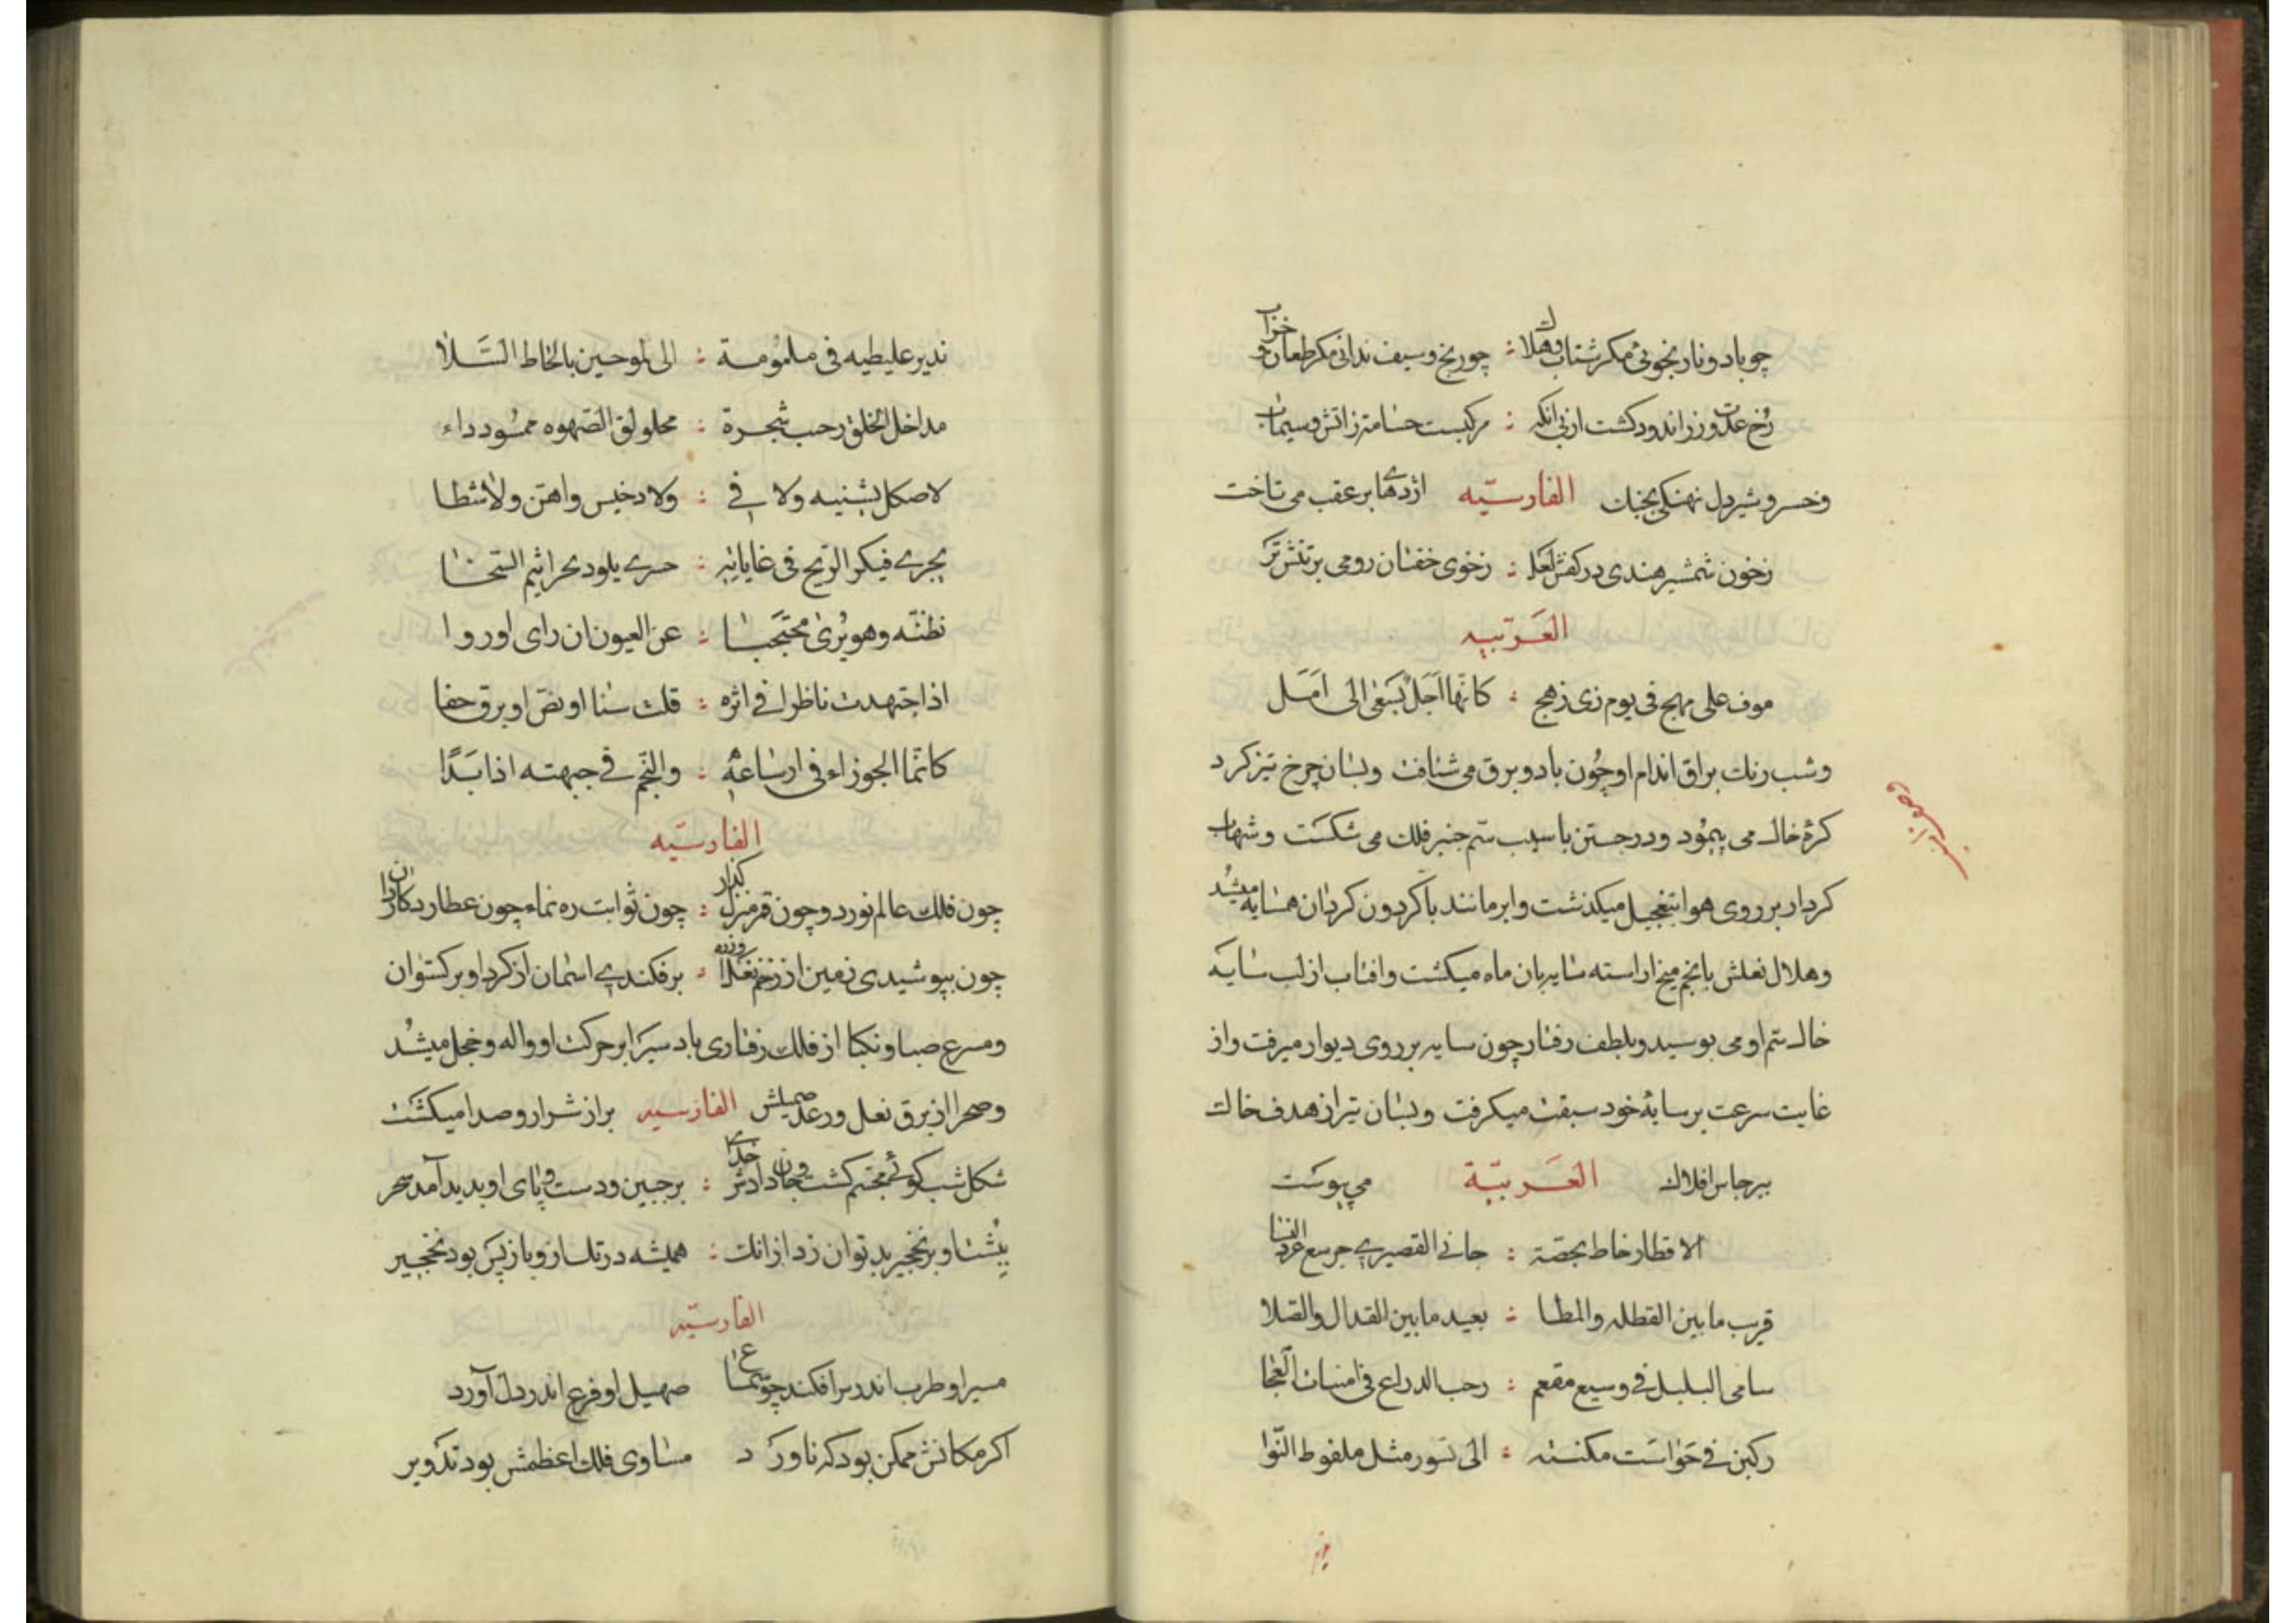 چو باد و نار نجوئی مکر شتاب وهلاک : چو رنج و سیف ندانی مکر طعان و خراب
رخ عدوت زر اندود کشت ازپی انکه : مرکبست حسامت ز اتش و سیماب
و خسرو شیردل نهنکی بجنک الفارسیّه اژدهایی بر عقب می تاخت
زخون شمشیر هندی در کفش لعل : زخوی خفتان رومی بر تنش تر
العَربّیه
موف علی مهج فی یوم ذی رهج : کانّها اَجَلٌ یَسَعٰی الی اَمَل
و شب رنك براق اندام او چُون باد و برق می شتافت و بسان چرخ تیز کرد
کرهٔ خاك می پیمُود و در جستن باسیب سّم چنبر فلك می شکسَت و شهاب
کردار بر روی هوا بتعجیل میکذشت و ابر مانند با کردون کردان همسایه میشُد
و هلال نعلش بانجم میخ اراسته سایه بان ماه میکشت و افتاب از لب سایَه
خاك سّم او می بوسید و بلطف رفتار چون سایه بر روی دیوار میرفت و از
غایت سرعت بر سایهٔ خود سبقت میکرفت و بسان تیر از هدف خاك
ببرجاس افلاك العَربّیة می پیوسَت
الاقطار خاط بحصّة : جانی القصیری جرسع عرد النسا
قریب ما بین القطاه والمطا : بعید ما بین القذال والصّلا
سامی البلیل فی وسیع مفعم : رحب الذراع فی امنیات العُجا
رکبن فی حَواسَت مکنسته : الی نسور مثل ملفوظ النّوا
ندیر علیطیه فی ملمُومة : الی لموحین بالحاظ السَّلاٰ
مداخل الخلق رحب شجرة : محلولق الصّهوه ممسُود داء
لا صکل یشینیه ولا فی : ولا دخیس واهن ولا شظا
یجری فیکبر الریح فی غایاتِه : حسری یلود بحراثیم السَّحٰا
نظنّه وهو یُریٰ محتَجبٰا : عن العیون ان رای او ر و ا
اذا اجتهدت ناظرا فی اثره : قلت سَنا اومض او برق خفا
کانّما الجوزاء فی ارساعه : والنّجم فی جبهته اذا بَدَا
الفارسیّه
چون فلك عالم نورد و چون قمر منزل کذار : چون ثوابت ره نماء چون عطارد کاردان
چون بپوشیدی زمین از زخم نعل او زره : بر فکندی اسمان از کرد او بر کستوان
و مسرع صبا و نکبا از فلك رفتاری باد سیر ابر حرکت او واله و خجل میشُد
و صحرا از برق نعل و رعد صهیلش الفارسیه بر از شرار و صدا میکشَت
شکل شب کوئی مجسّم کشت و جان دادش خدای : بر جبین و دست و پای او بدید آمد سحر
بپُشت او بر نخجیر بد توان زد ازانك : همیشه در تك از و باز پس بود نخجیر
الفارسیّه
مسیر او طرب اندر سر افکند چو سَماع صهیل او فرع اندر دل آورد
اکر مکانش ممکن بود که ناورَ د مساوی فلك اعظمش بود تدویر